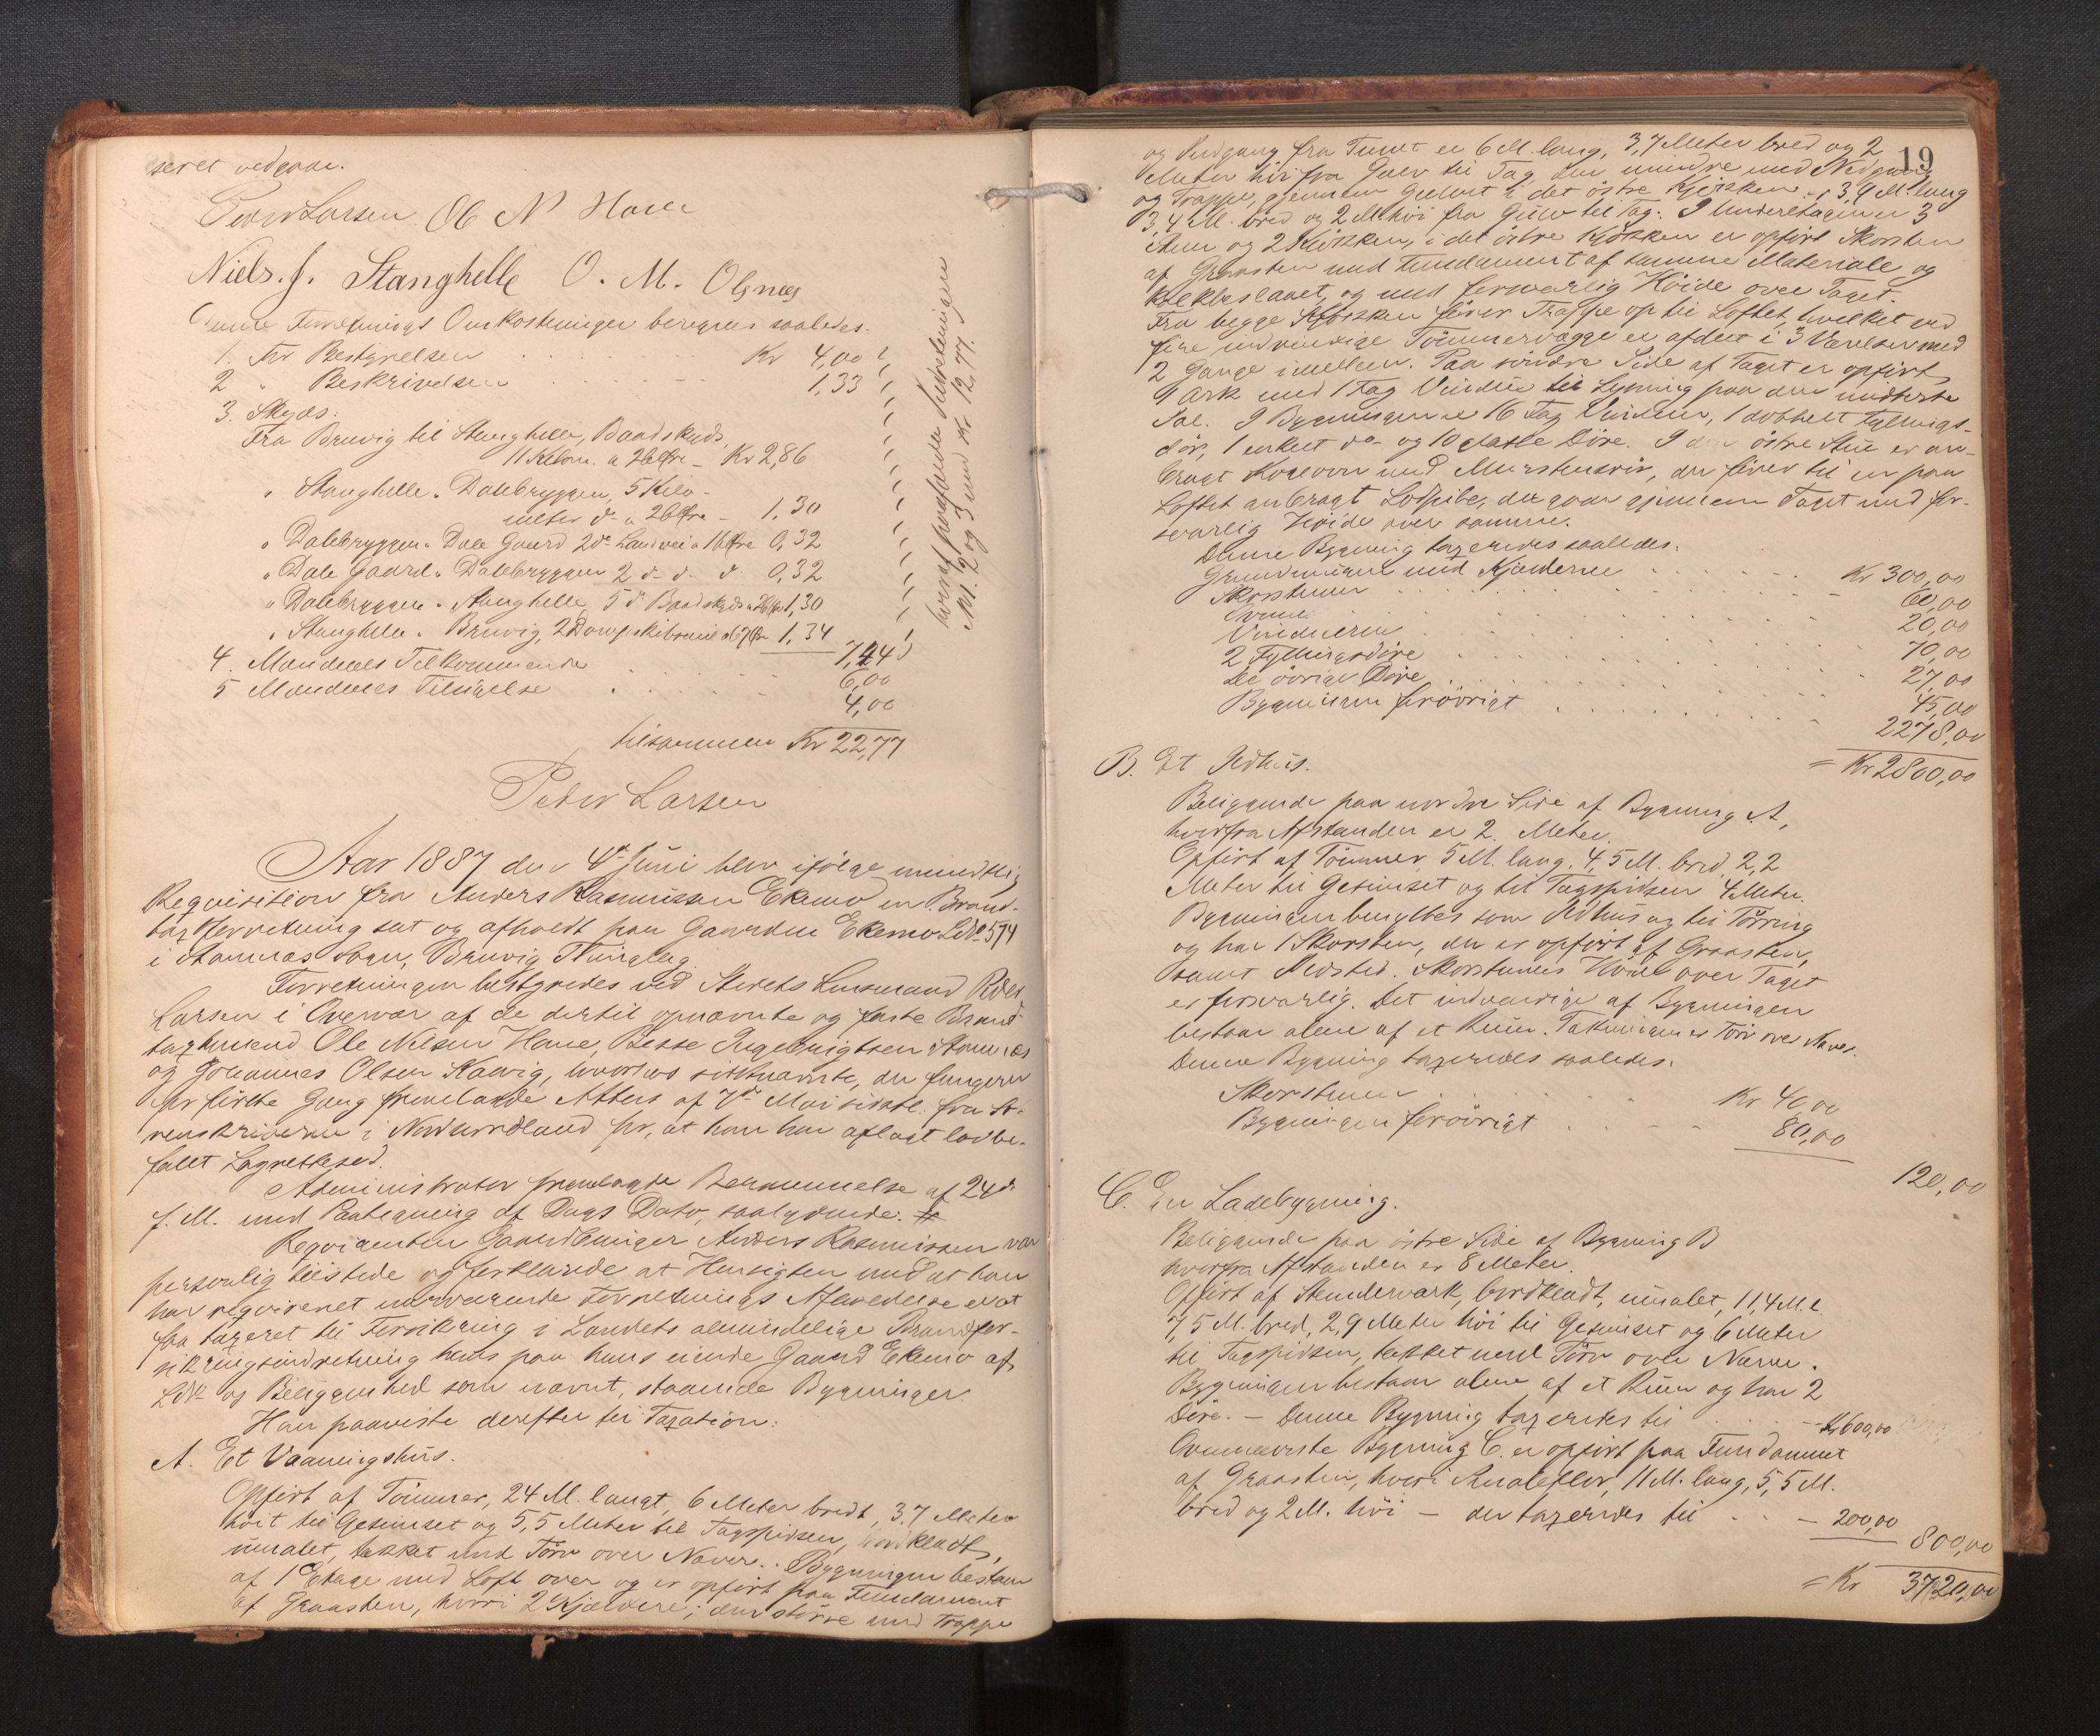 seret vedgaae.
Peder Larsen Ole N Hove
Niels. J. Stanghelle O. M. Olsnes
Denne Forretnings Omkostninger beregnes saaledes.
1. For Bestyrelsen Kr 4,00
2 " Beskrivelsen 1,33
3. Skyds:
Fra Bruvig til Stanghelle, Baadskyds,
11 Kilom. a 26 Øre - Kr 2,86
" Stanghelle " Dalebryggen, 5 Kilo-
meter do a 26 Øre - 1,30
" Dalebryggen " Dale Gaard 2 do Landvei a 16 Øre 0,32
" Dale Gaard " Dalebryggen 2 d- d- d- 0,32
" Dalebryggen " Stanghelle, 5 d Baadskyds a 26 Øre 1,30
" Stanghelle " Bruvig, 2 Dampskibsmiil a 67 Øre 1,34
7,44
4. Mændenes Tilkommende 6,00
5 Mændenes Tilsigelse 4,00
tilsammen Kr 22,77
hvoraf paafaldende
No 1. 2 og 3 med Kr 12,77.
Peder Larsen
Aar 1887 den 4de Juni blev ifølge mundtlig
Reqvisition fra Anders Rasmussen Ekemo en Brand-
taxtforretning sat og afholdt paa Gaarden Ekemo Ldno 574
i Stamnæs Sogn, Bruvig Thinglag.
Forretningen bestyredes ved Stedets Lensmand Peder
Larsen i Overvær af de dertil opnævnte og faste Brand-
taxtmænd Ole Nilsen Hove, Besse Ingebrigtsen Stamnæs
og Johannes Olsen Kaavig, hvoraf sidstnævnte, der fungerer
for første Gang fremlagde Attest af 7de Mai sidstl. fra So-
renskriveren i Nordhordland for, at han har aflagt lovbe-
falet Lagrettesed.
Administrator fremlagde Bekjendtgjørelse af 24de
f. M. med Paategning af Dags Dato, saalydende: #
Reqvirenten Gaardbruger Anders Rasmussen var
personlig tilstede og forklarede at Hensigten med at han
har reqvireret nærværende Forretnings Afholdelse er at
faa taxeret til Forsikring i Landets almindelige Brandfor-
sikringsindretning hans paa hans eiende Gaard Ekemo af
Ldno og Beliggenhed som nævnt, staaende Bygninger.
Han paaviste derefter til Taxation:
A. Et Vaaningshus.
Opført af Tømmer, 24 M. langt, 6 Meter bredt, 3,7 Meter
høit til Gesimset og 5,5 Meter til Tagspidsen, bordklædt,
umalet, tækket med Torv over Næver. Bygningen bestaar
af 1 Etage med Loft over og er opført paa Fundament
af Graasten, hvori 2 Kjældere; den større med Trappe
19
og Nedgang fra Tunet er 6 M. lang, 3,7 Meter bred og 2
Meter høi fra Gulv til Tag den mindre med Nedgang
og Trappe, gjennem Gulvet i det østre Kjøkken, 3,9 M. lang
3,4 M. bred og 2 M. høi fra Gulv til Tag. I Underetagen er 3
Stuer og 2 Kjøkken, i det østre Kjøkken er opført Skorsten
af Graasten med Fundament af samme Materiale og
Kalkbeslaaet, og med forsvarlig Høide over Taget.
Fra begge Kjøkken fører Trappe op til Loftet, hvilket ved
fire indvendige Tømmervægge er afdelt i 3 Værelser med
2 Gange imellem. Paa søndre Side af Taget er opført
1 Ark med 1 Fag Vindue til Lysning paa den midterste
Sal. I Bygningen er 16 Fag Vinduer, 1 dobbelt Fyllings-
dør, 1 enkelt do og 10 slatte Døre. I den østre Stue er an-
bragt Kakovn med Murstensrør, der fører til en paa
Loftet anbragt Lodpibe, der gaar gjennem Taget med for-
svarlig Høide over samme.
Denne Bygning taxeredes saaledes:
Grundmuren med Kjælderne Kr 300,00
Skorstenen 60,00
Ovnen 20,00
Vinduerne 70,00
2 Fyllingsdøre 27,00
de øvrige Døre 45,00
Bygningen forøvrigt 2278,00
= Kr 2800,00
B. Et Ildhus.
Beliggende paa nordre Side af Bygning A,
hvorfra Afstanden er 2 Meter.
Opført af Tømmer, 5 M. lang, 4,5 M. bred, 2,2
Meter til Gesimset og til Tagspidsen 4 Meter.
Bygningen benyttes som Ildhus og til Tørring
og har 1 Skorsten, der er opført af Graasten,
samt Ildsted. Skorstenens Høide over Taget
er forsvarlig. Det indvendige af Bygningen
bestaar alene af et Rum. Tækningen er Torv over Næver.
Denne Bygning taxeredes saaledes:
Skorstenen Kr 40,00
Bygningen forøvrigt 80,00
120,00
C. En Ladebygning.
Beliggende paa østre Side af Bygning B
hvorfra Afstanden er 8 Meter.
Opført af Stenderværk, bordklædt, umalet, 11,4 M. l.
7,5 M. bred, 2,9 Meter høi til Gesimset og 6 Meter
til Tagspidsen, tækket med Torv over Næver.
Bygningen bestaar alene af et Rum og har 2
Døre. - Denne Bygning taxeredes til - Kr 600,00
Ovennævnte Bygning C. er opført paa Fundament
af Graasten, hvori Smaleflor, 11 M. lang, 5,5 M.
bred og 2 M. høi - der taxeredes til - 200,00
800,00
= Kr 3720,00